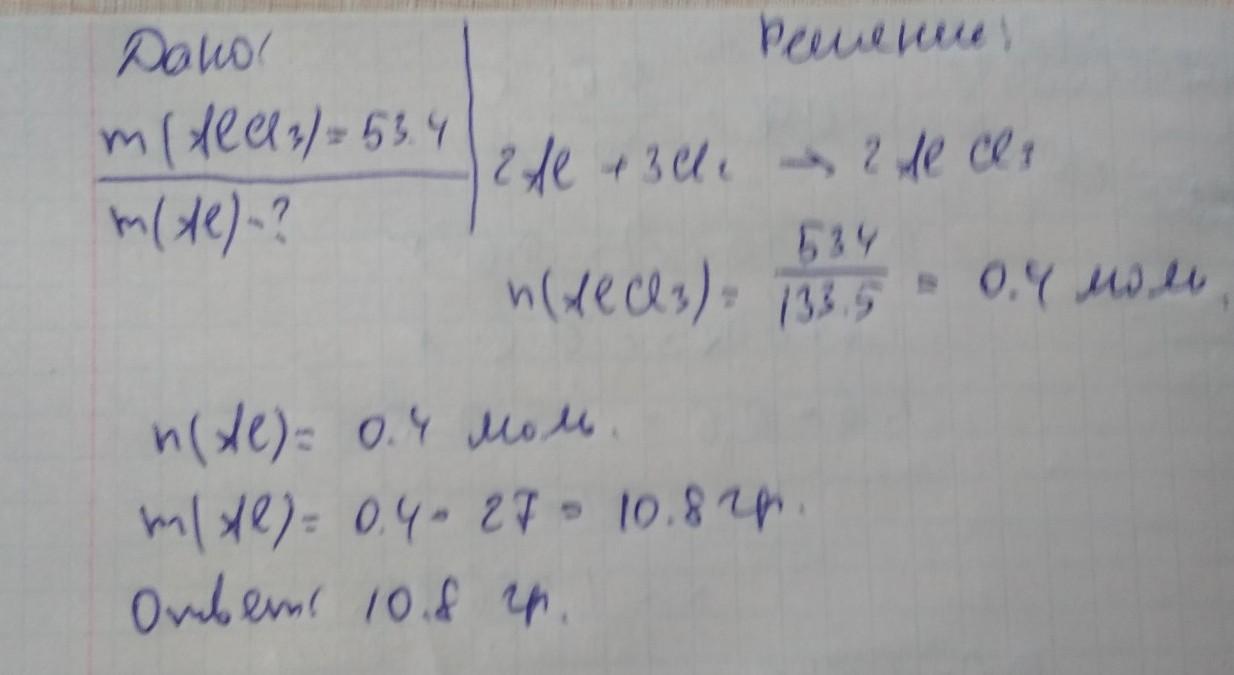 Дано:
m(AlCl₃)=53.4
m(Al)-?
Решение:
2Al + 3Cl₂ → 2AlCl₃
n(AlCl₃)= 53.4/133.5 = 0.4 моль.
n(Al)= 0.4 моль.
m(Al)= 0.4 · 27 = 10.8 гр.
Ответ: 10.8 гр.